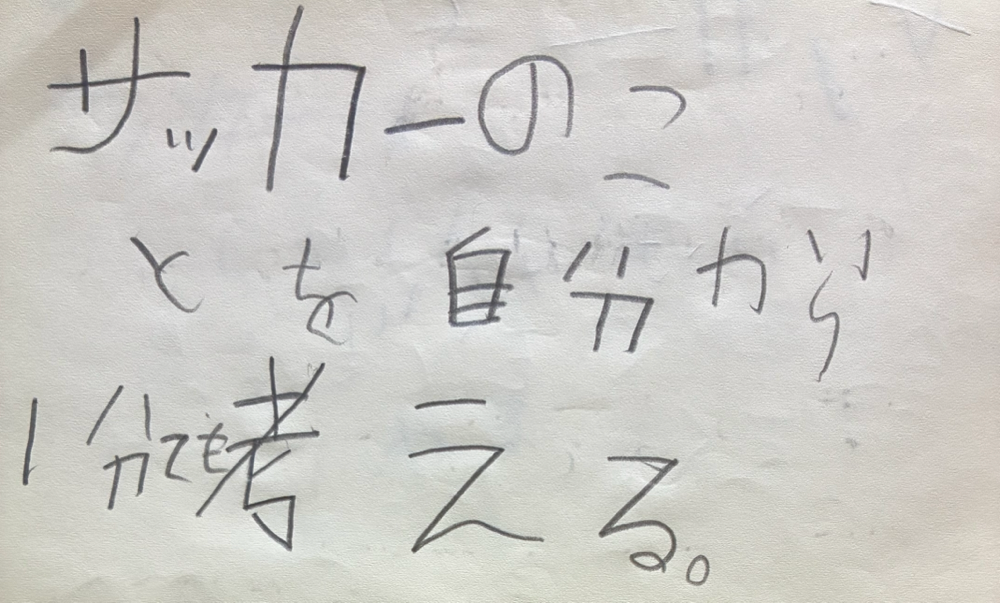 サッカーのこ
とを自分から
1分でも考える。